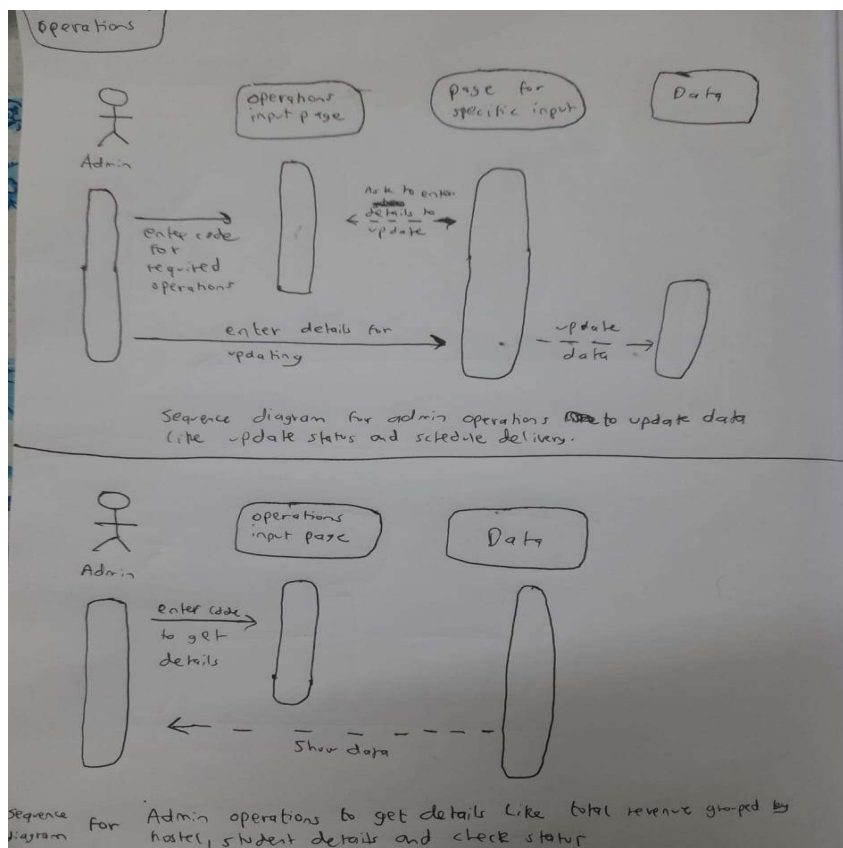 operations
operations
input page
page for
specific input
Data
Admin
Ask to enter
details to
update
enter code
for
required
operations
enter details for
updating
update
data
Sequence diagram for admin operations to update data
like update status and schedule delivery.
operations
input page
Data
Admin
enter code
to get
details
Show data
Sequence diagram for Admin operations to get details like total revenue grouped by
hostel, student details and check status